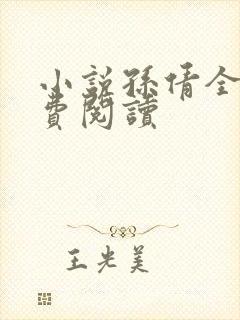 小説孫倩全
費閱讀
王光美